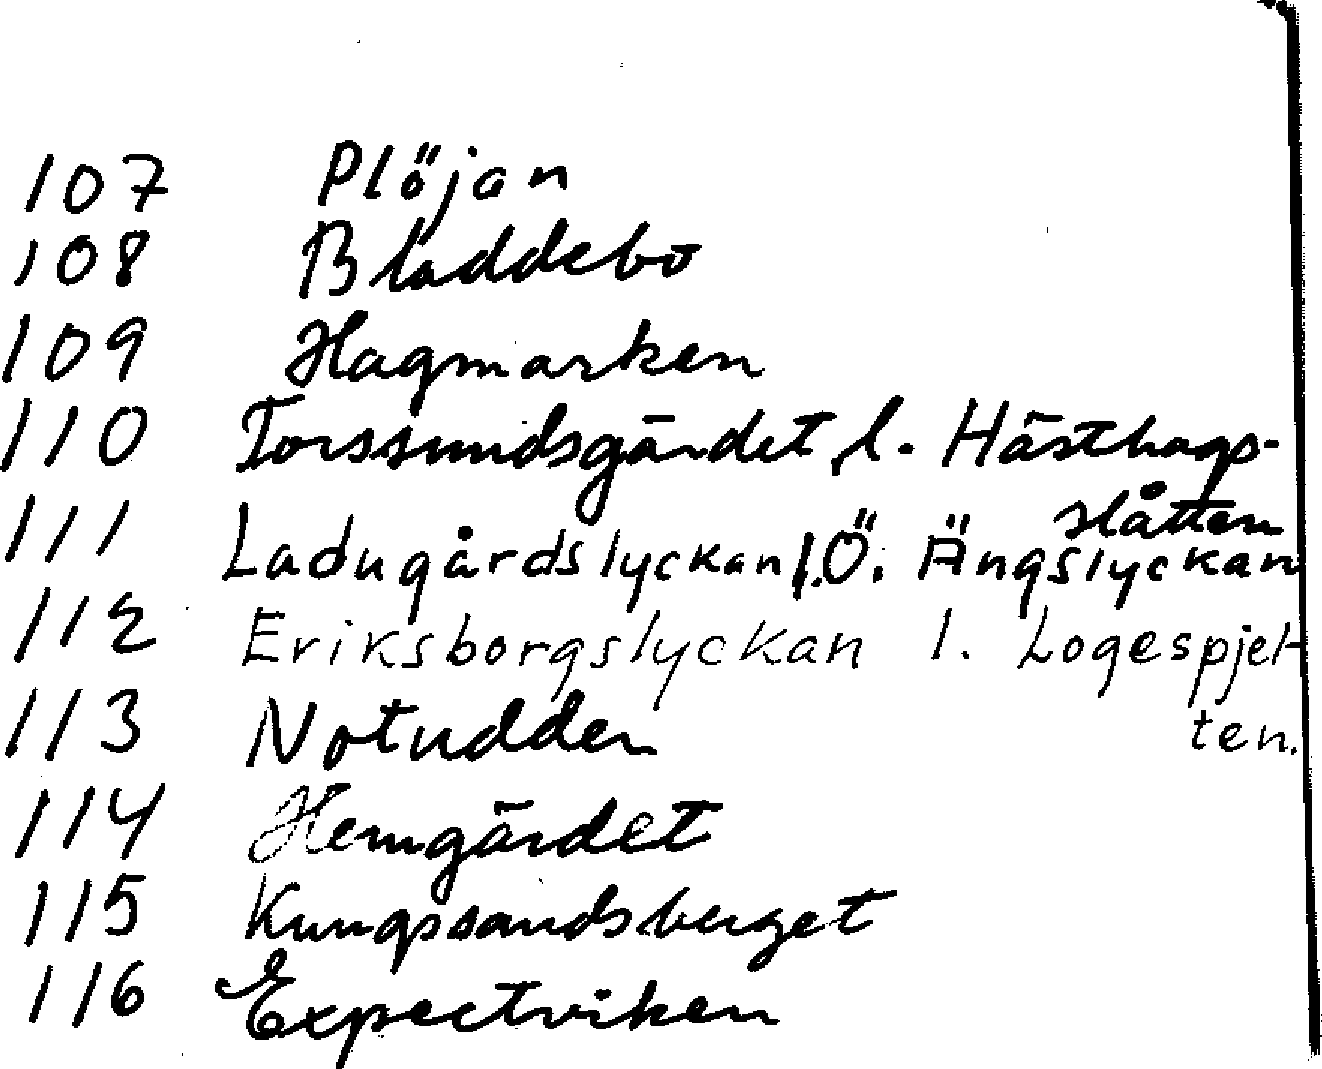 107 Plöjan
108 Bladdebo
109 Hagmarken
110 Torssundsgärdet, l. Hästhags-
slåtten
111 Ladugårdslyckan l. Ö. Ängslyckan
112 Eriksborgslyckan l. Logespjet-
ten.
113 Notudden
114 Hemgärdet
115 Kungssandsberget
116 Expectviken